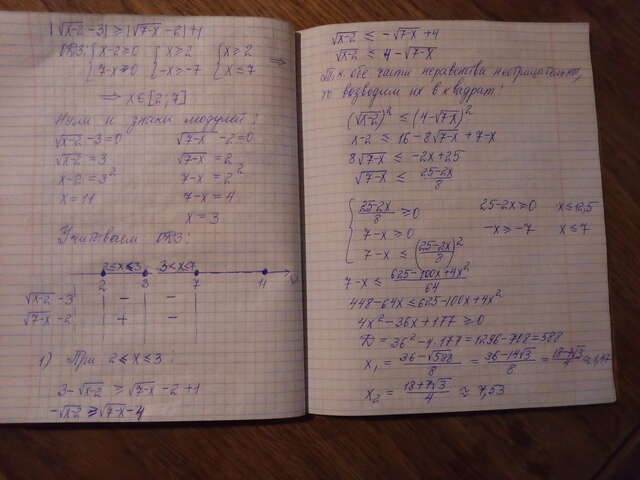 |√x-2 -3| ≥ |√7-x -2|+1
ОДЗ: { x-2≥0 { x≥2 { x≥2 ⇒
7-x≥0 -x≥-7 x≤7
⇒ x∈[2;7]
Нули и знаки модулей:
√x-2 -3=0 √7-x -2=0
√x-2 = 3 √7-x = 2
x-2=3² 7-x = 2²
x = 11 7-x = 4
x = 3
Учитываем ОДЗ:
2≤x≤3 3<x≤7
2 3 7 11
√x-2 -3 - -
√7-x -2 + -
1) При 2≤x≤3:
3-√x-2 ≥ √7-x -2+1
-√x-2 ≥ √7-x -4
√x-2 ≤ -√7-x +4
√x-2 ≤ 4-√7-x
Т.к. обе части неравенства неотрицательно,
то возводим их в квадрат:
(√x-2)² ≤ (4-√7-x)²
x-2 ≤ 16-8√7-x +7-x
8√7-x ≤ -2x+25
√7-x ≤ 25-2x/8
{ 25-2x/8 ≥0 25-2x≥0 x≤12,5
7-x ≥0 -x≥-7 x≤7
7-x ≤ (25-2x/8)²
7-x ≤ 625-100x+4x²/64
448-64x ≤ 625-100x+4x²
4x²-36x+177 ≥0
D=36²-4·177=1296-708=588
x₁ = 36-√588/8 = 36-14√3/8 = 18-7√3/4 ≈ 1,47
x₂ = 18+7√3/4 ≈ 7,53